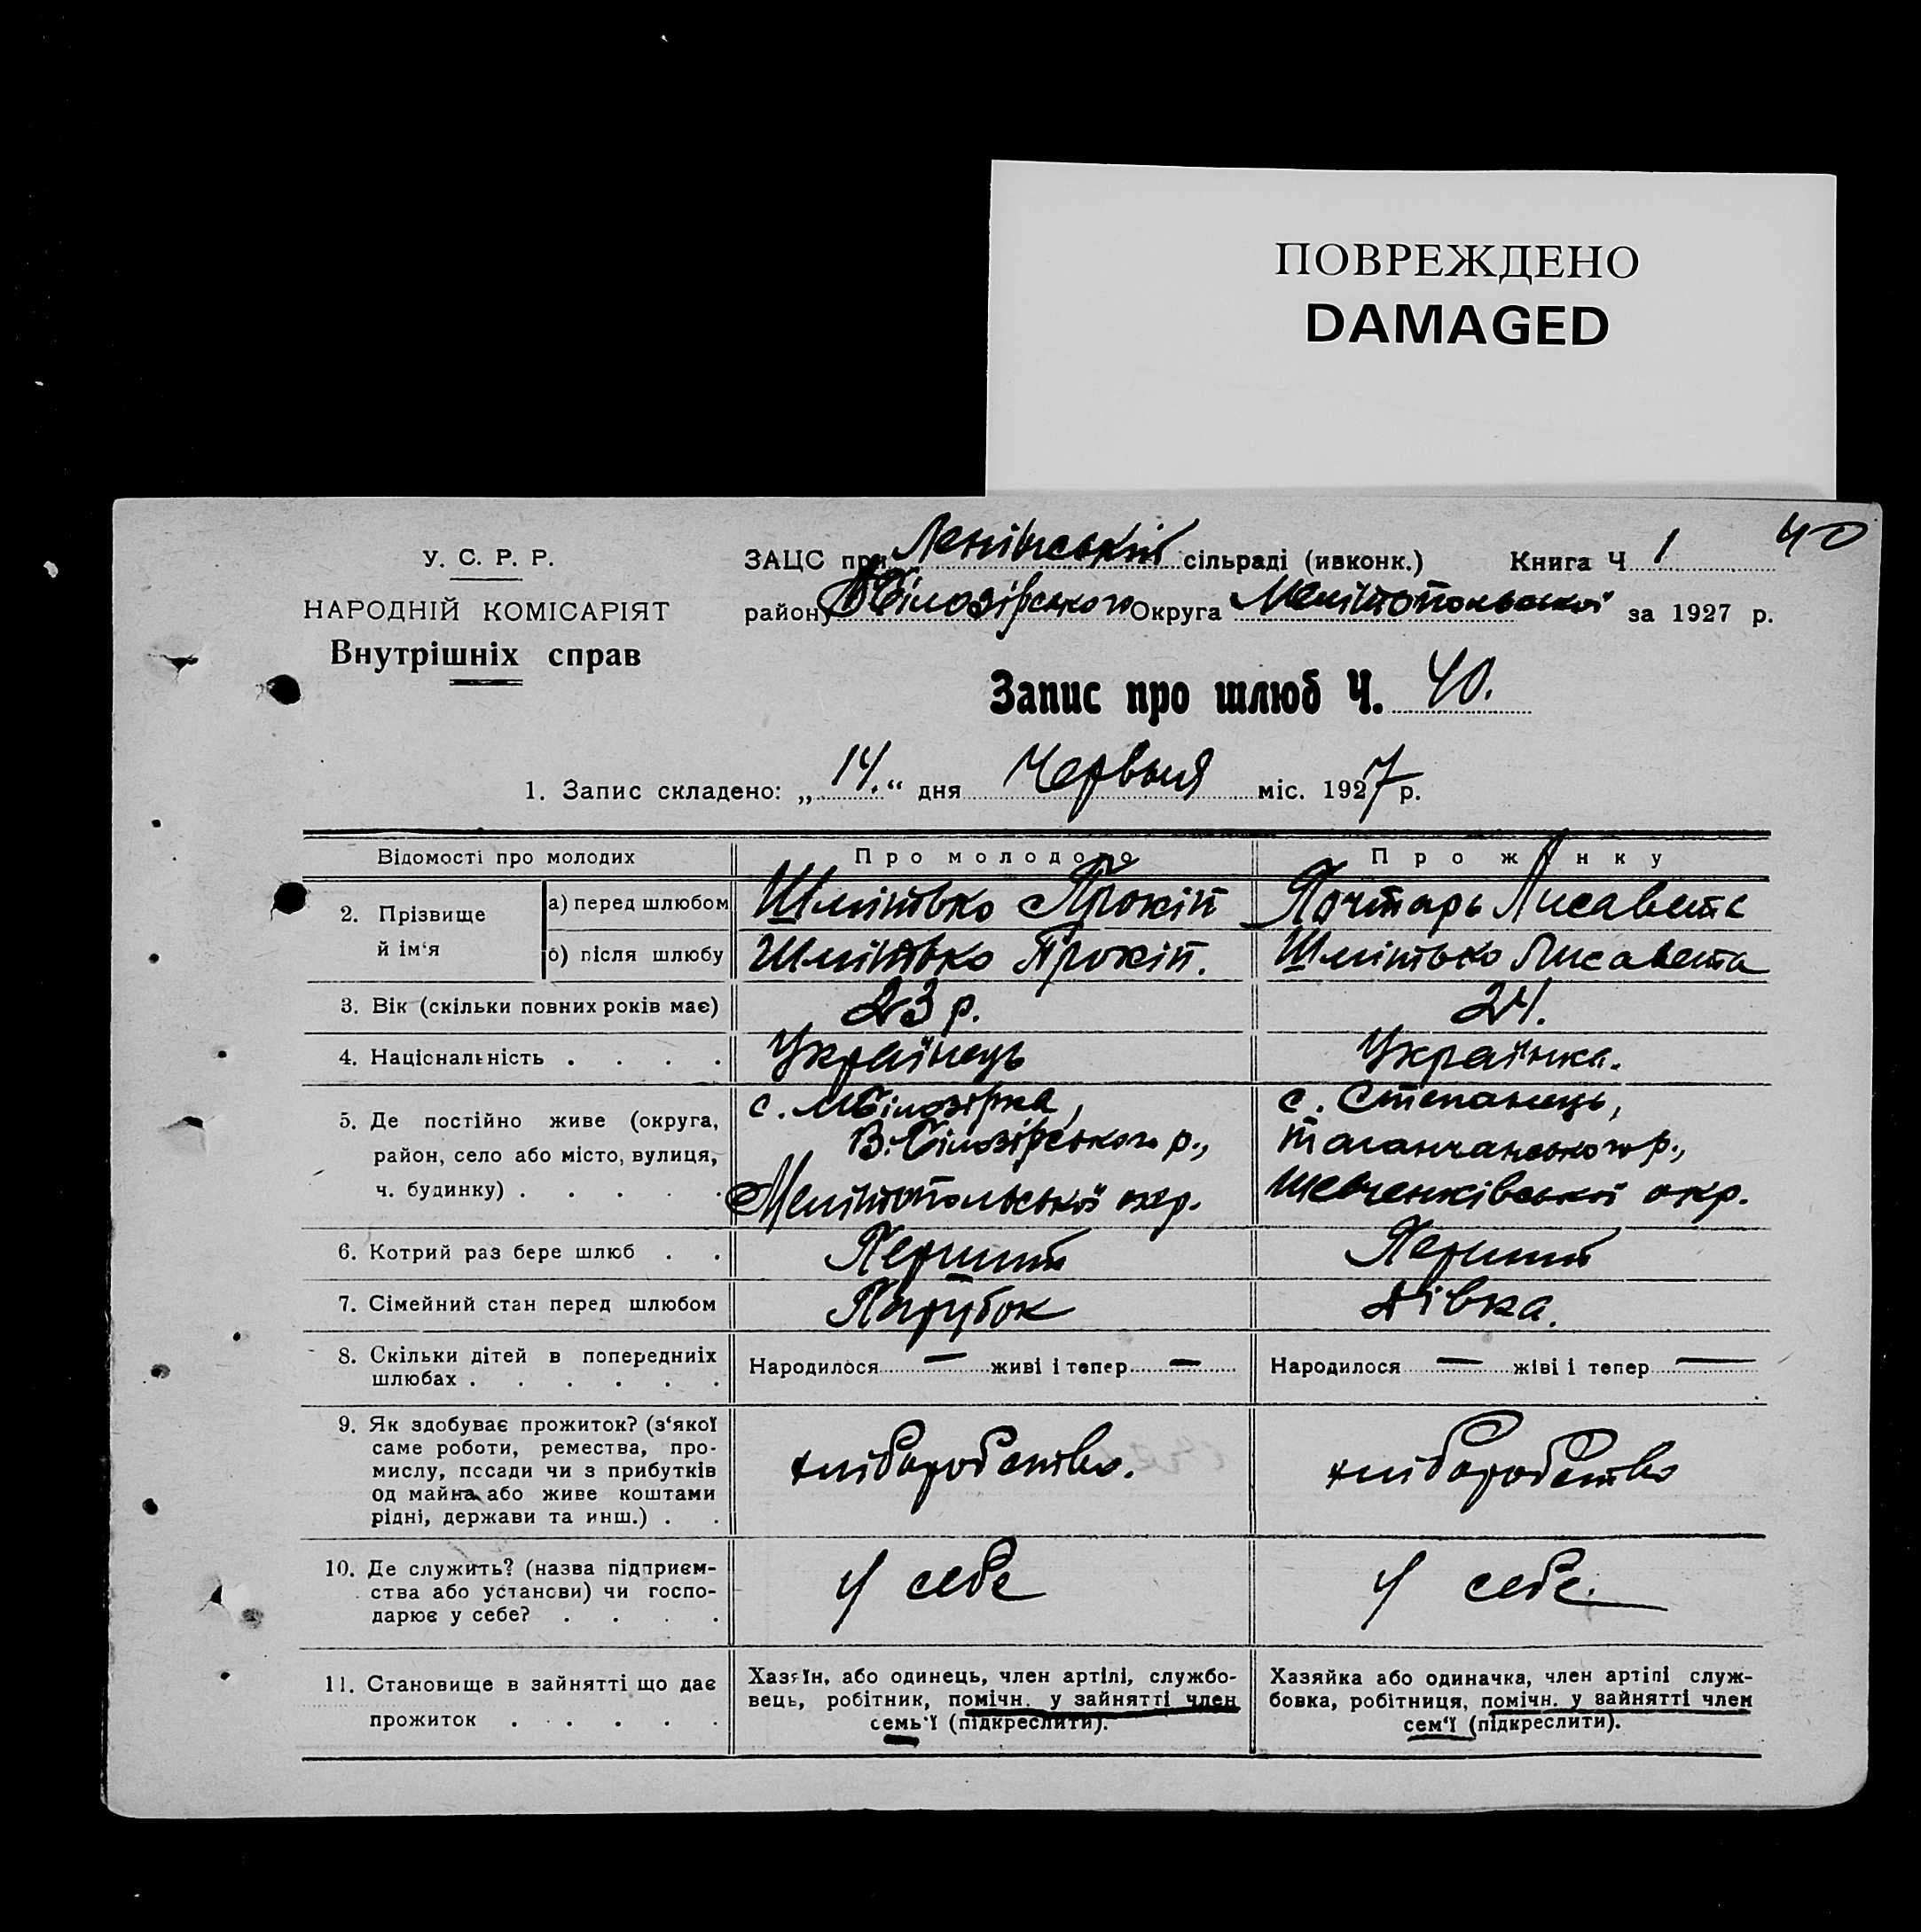 ПОВРЕЖДЕНО
DAMAGED
У. С. Р. Р.
НАРОДНІЙ КОМІСАРІЯТ
Внутрішніх справ
ЗАЦС при Ленінській сільраді (ивконк.) Книга Ч 1 40
району В Білозірського Округа Мелітопольської за 1927 р.
Запис про шлюб Ч. 40.
1. Запис складено: „14.“ дня Червня міс. 1927 р.
Відомості про молодих
Про молодого
Про жінку
2. Прізвище й ім‘я
а) перед шлюбом
Шмітько Прокіп
Почтарь Лисавета
б) після шлюбу
Шмітько Прокіп.
Шмітько Лисавета
3. Вік (скільки повних років має)
23 р.
24.
4. Національність . . . .
Українець
Українка.
5. Де постійно живе (округа,
район, село або місто, вулиця,
ч. будинку) . . . . .
с. МБілозірка,
В.-Білозірського р.,
Мелітопольської окр.
с. Степанець,
Таганчанського р.,
Шевченківської окр.
6. Котрий раз бере шлюб . .
Перший
Перший
7. Сімейний стан перед шлюбом
Парубок
Дівка.
8. Скільки дітей в попередниіх
шлюбах . . . . . .
Народилося — живі і тепер —
Народилося — жіві і тепер —
9. Як здобуває прожиток? (з‘якої
саме роботи, ремества, про-
мислу, посади чи з прибутків
од майна або живе коштами
рідні, держави та инш.) . .
хліборобство.
хліборобство
10. Де служить? (назва підприєм-
ства або установи) чи госпо-
дарює у себе? . . . .
У себе
У себе.
11. Становище в зайнятті що дає
прожиток . . . . .
Хазяїн, або одинець, член артілі, службо-
вець, робітник, помічн. у зайнятті член
семь‘ї (підкреслити).
Хазяйка або одиначка, член артілі служ-
бовка, робітниця, помічн. у зайнятті член
сем‘ї (підкреслити).